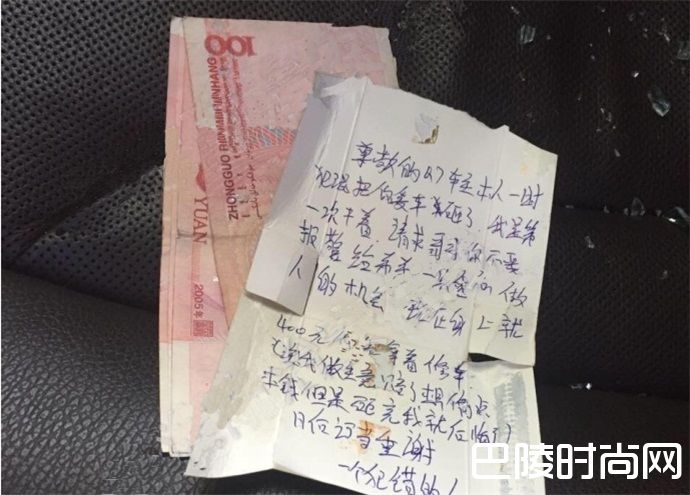 100
ZHONGGUO RENMIN YINHANG
YUAN
2005年
尊敬的Q7车主本人一时
犯混把你爱车砸了，我是第
一次干着，请求哥哥你不要
报警给弟弟一个重新做
人的机会 现在身上就
400元你先拿着修车
我做生意赔了想偷点
本钱但是砸完我就后悔了
日后定当重谢
一个犯错的人
巴陵时尚网